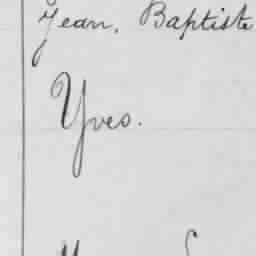 Jean, Baptiste
Yves.